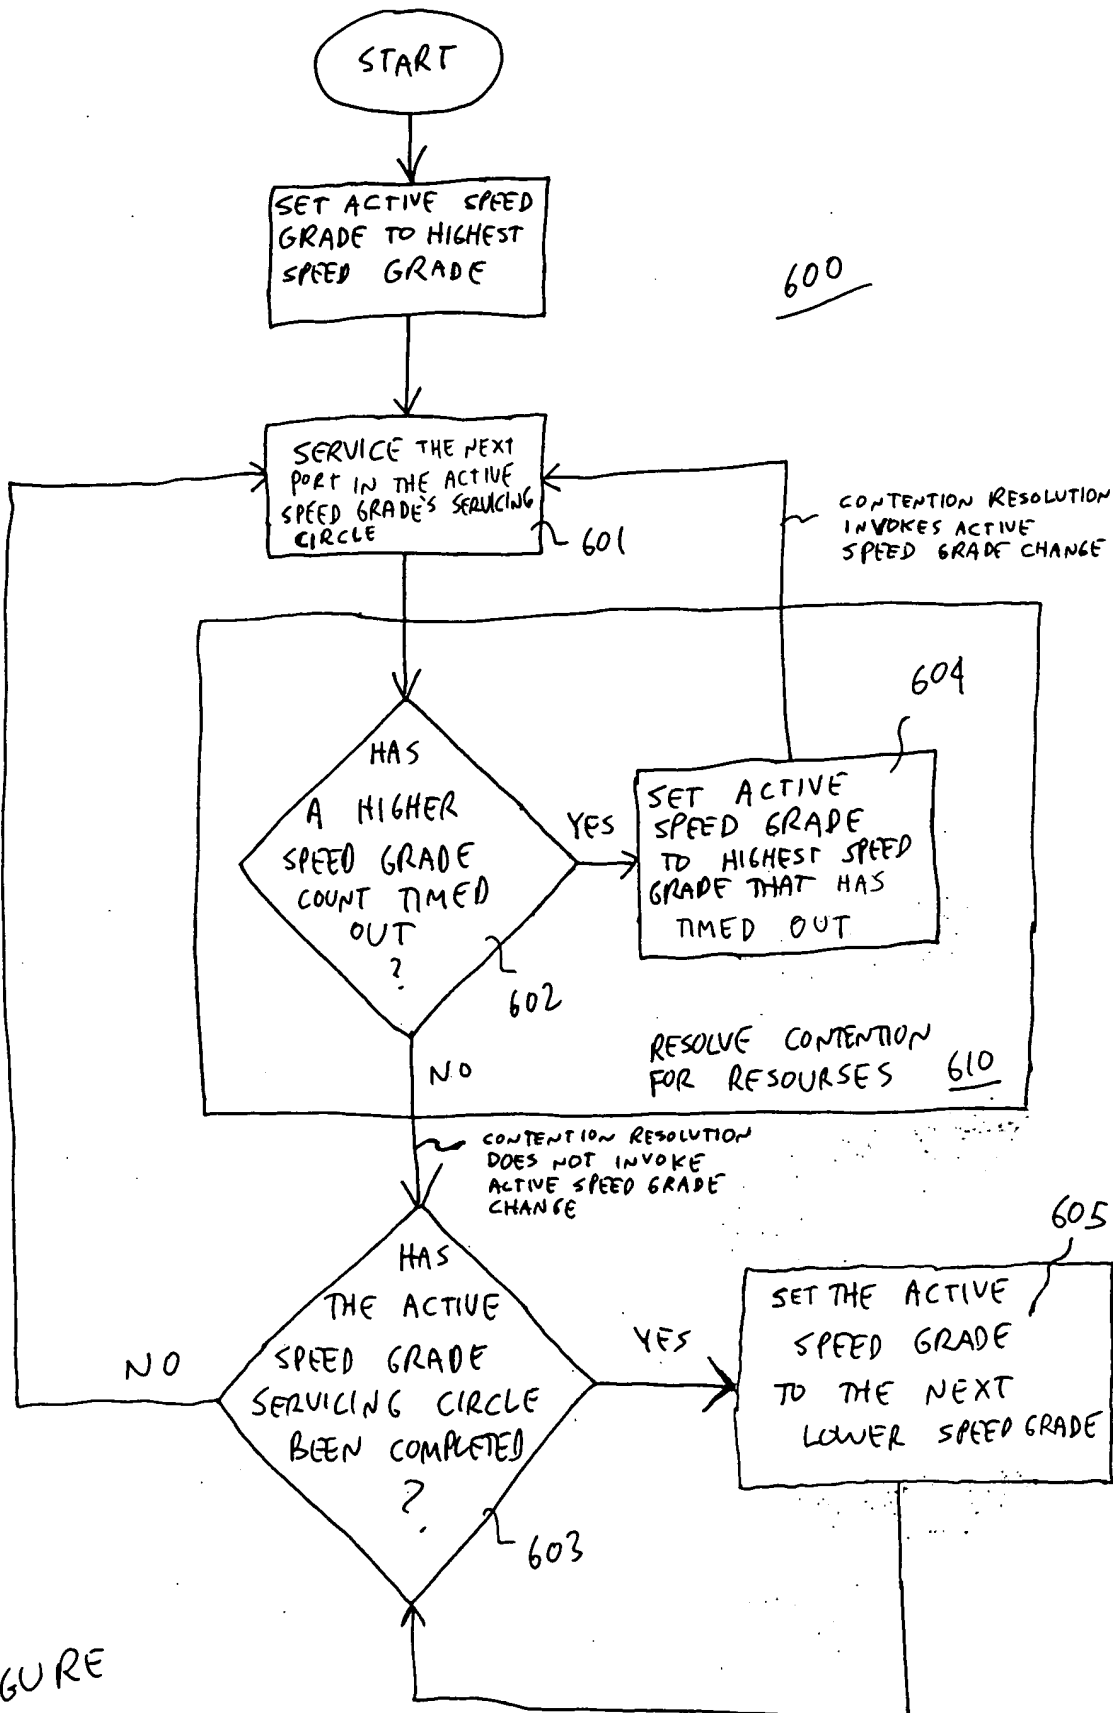 START
SET ACTIVE SPEED
GRADE TO HIGHEST
SPEED GRADE
600
SERVICE THE NEXT
PORT IN THE ACTIVE
SPEED GRADE'S SERVICING
CIRCLE
601
CONTENTION RESOLUTION
INVOKES ACTIVE
SPEED GRADE CHANGE
604
HAS
A HIGHER
SPEED GRADE
COUNT TIMED
OUT
?
602
YES
SET ACTIVE
SPEED GRADE
TO HIGHEST SPEED
GRADE THAT HAS
TIMED OUT
RESOLVE CONTENTION
FOR RESOURSES
610
NO
CONTENTION RESOLUTION
DOES NOT INVOKE
ACTIVE SPEED GRADE
CHANGE
605
HAS
THE ACTIVE
SPEED GRADE
SERVICING CIRCLE
BEEN COMPLETED
?
603
NO
YES
SET THE ACTIVE
SPEED GRADE
TO THE NEXT
LOWER SPEED GRADE
GURE